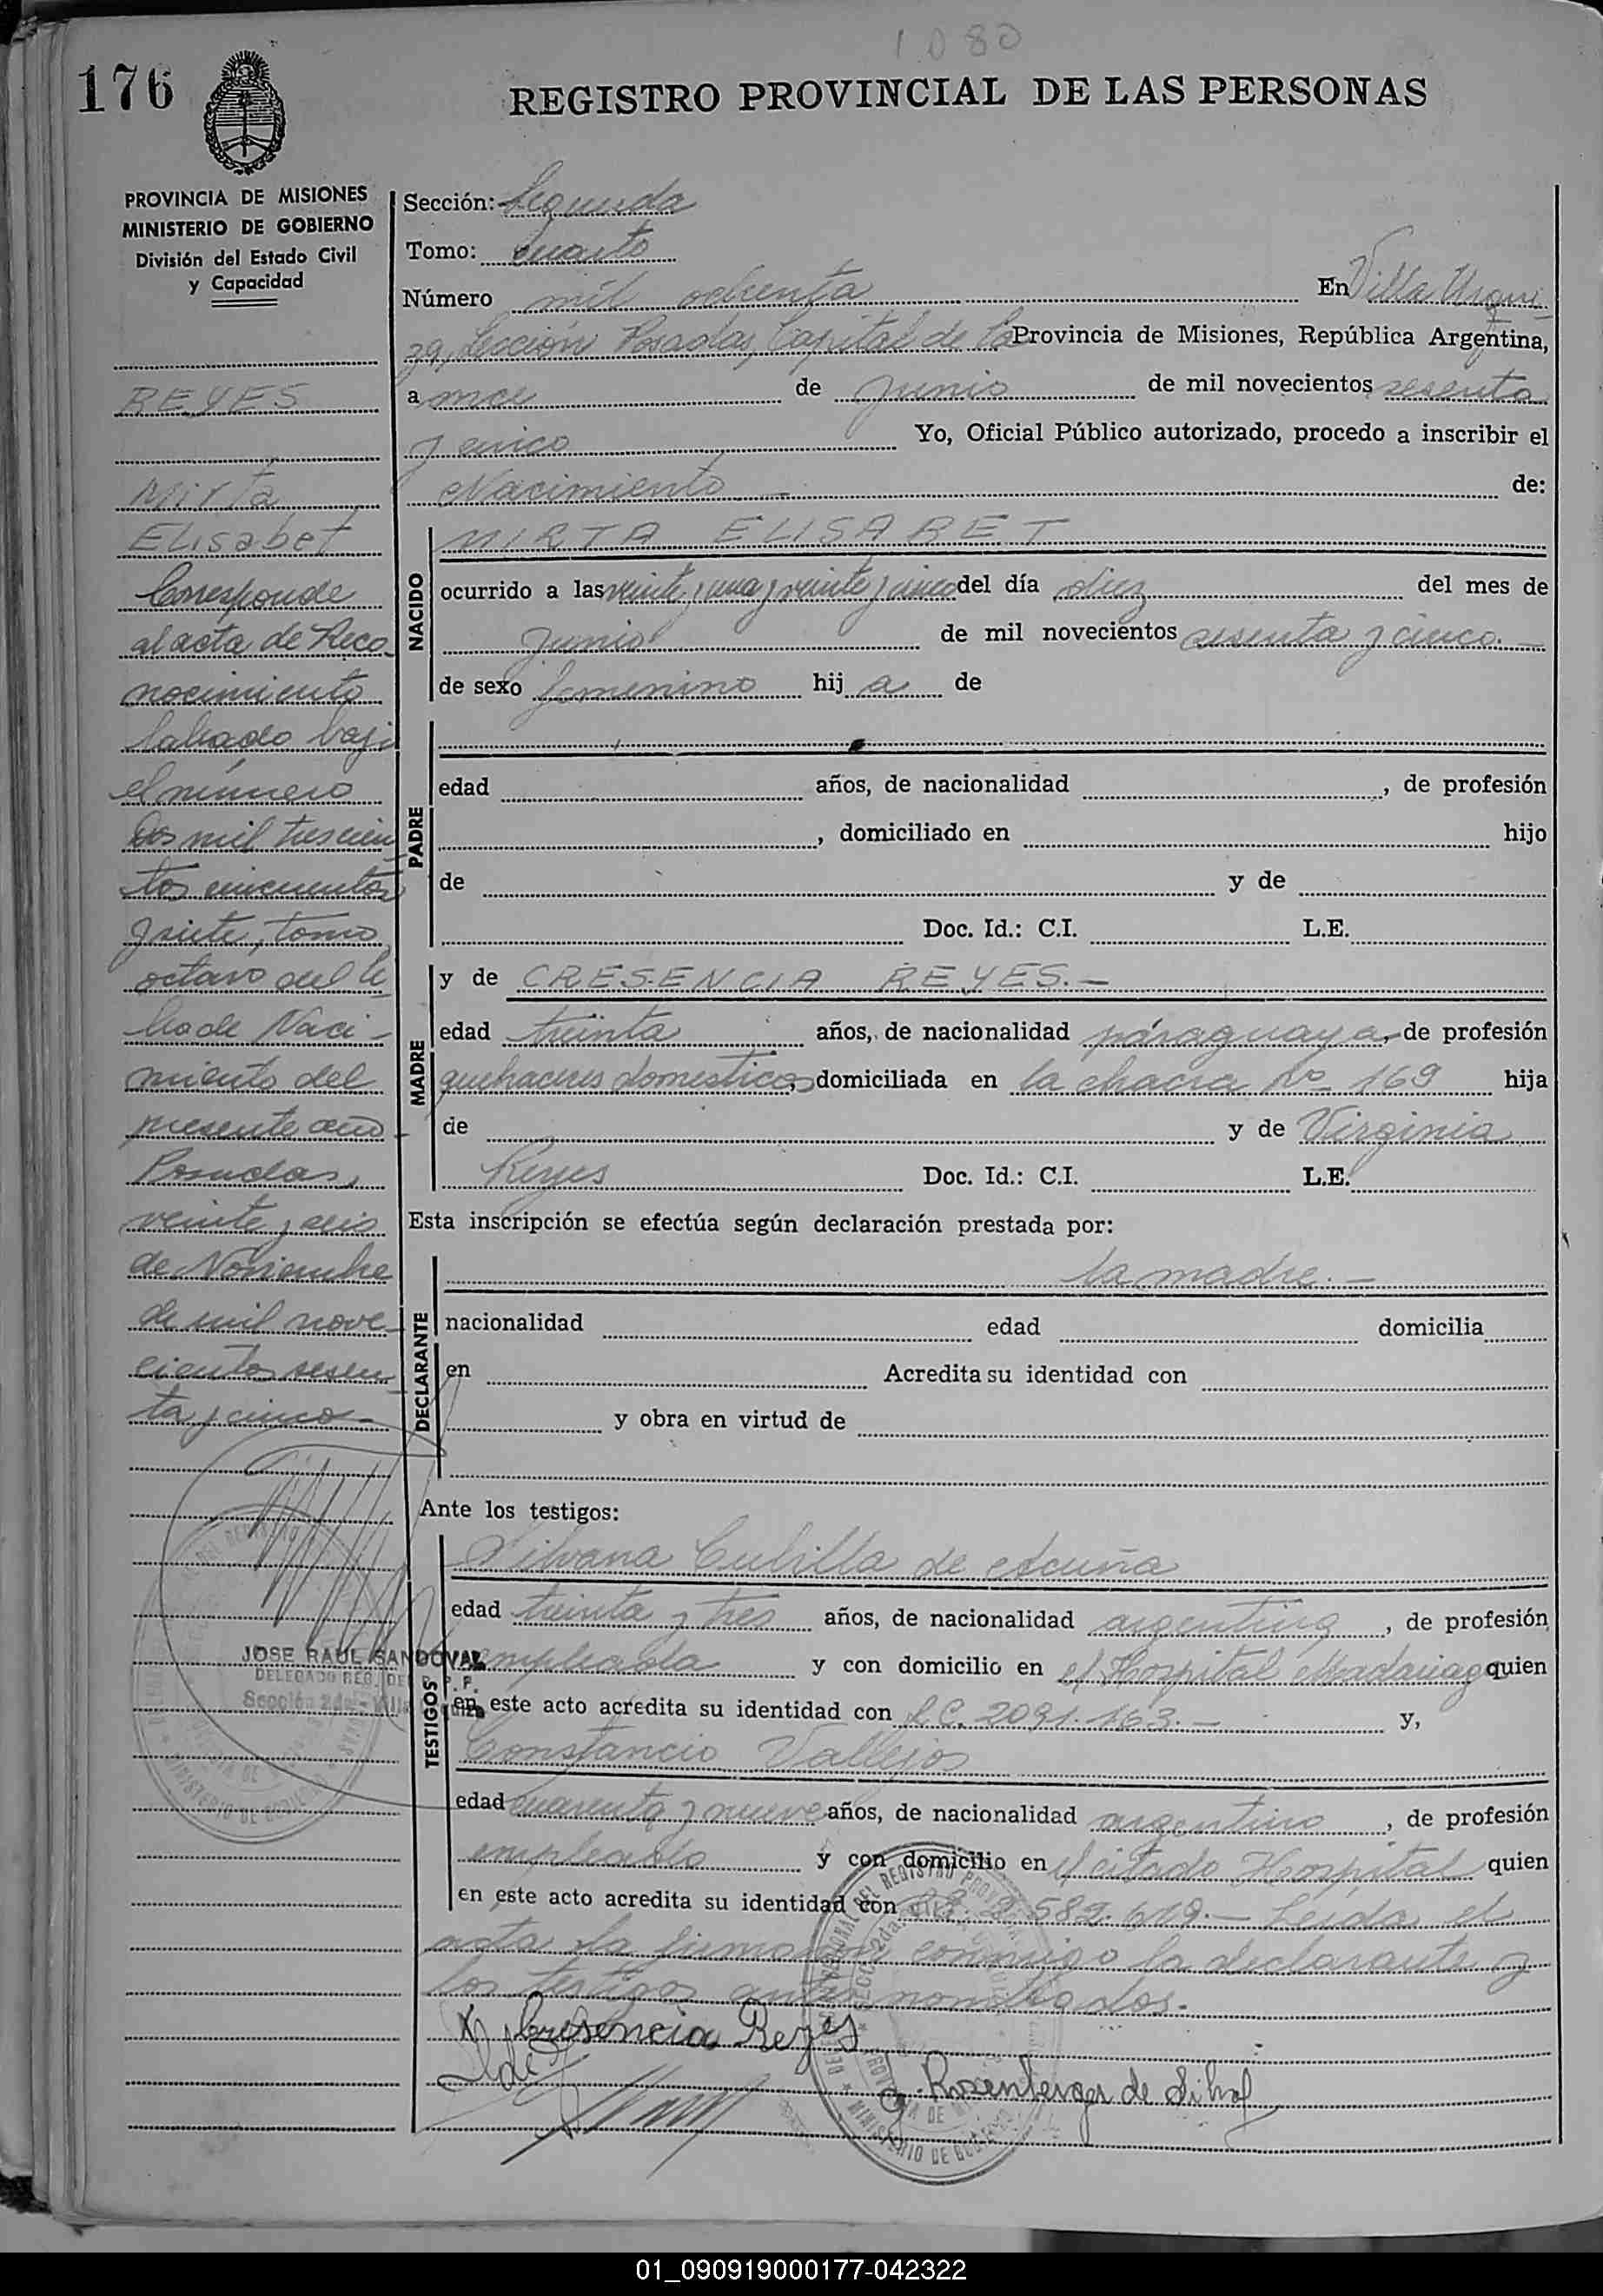 1080
176
REGISTRO PROVINCIAL DE LAS PERSONAS
PROVINCIA DE MISIONES
MINISTERIO DE GOBIERNO
División del Estado Civil
y Capacidad
REYES
Mirta
Elisabet
Corresponde
al acta de Reco-
nocimiento
labrado bajo
el número
Dos mil trescien
tos cincuenta
y siete, tomo
octavo del li-
bro de Naci-
miento del
presente año-
Posadas,
veinte y seis
de Noviembre
de mil nove-
cientos sesen-
ta y cinco-
JOSE RAUL SANDOVAL
DELEGADO REG. DE P. P.
Sección 2da. - Villa Urquiza
Sección: Segunda
Tomo: Cuarto
Número mil ochenta En Villa Urqui-
za, Sección Posadas, Capital de la Provincia de Misiones, República Argentina,
a once de Junio de mil novecientos sesenta
y cinco Yo, Oficial Público autorizado, procedo a inscribir el
Nacimiento de:
NACIDO
MIRTA ELISABET
ocurrido a las veinte y una y veinte y cinco del día diez del mes de
Junio de mil novecientos sesenta y cinco.-
de sexo femenino hij a de
PADRE
edad años, de nacionalidad , de profesión
, domiciliado en hijo
de y de
Doc. Id.: C.I. L.E.
MADRE
y de CRESENCIA REYES.-
edad treinta años, de nacionalidad paraguaya, de profesión
quehaceres domesticos, domiciliada en la chacra Nº 169 hija
de y de Virginia
Reyes Doc. Id.: C.I. L.E.
Esta inscripción se efectúa según declaración prestada por:
DECLARANTE
la madre.-
nacionalidad edad domicilia
en Acredita su identidad con
y obra en virtud de
Ante los testigos:
TESTIGOS
Silvana Cubilla de Acuña
edad treinta y tres años, de nacionalidad argentina, de profesión
empleada y con domicilio en el Hospital Madariaga quien
en este acto acredita su identidad con L.C. 2091.163.- y,
Constancio Vallejos
edad cuarenta y nueve años, de nacionalidad argentino, de profesión
empleado y con domicilio en el citado Hospital quien
en este acto acredita su identidad con 2.582.619.- Leída el
acta la firma con conmigo la declarante y
los testigos antes nombrados.-
x Cresencia Reyes
de Silva
01_090919000177-042322